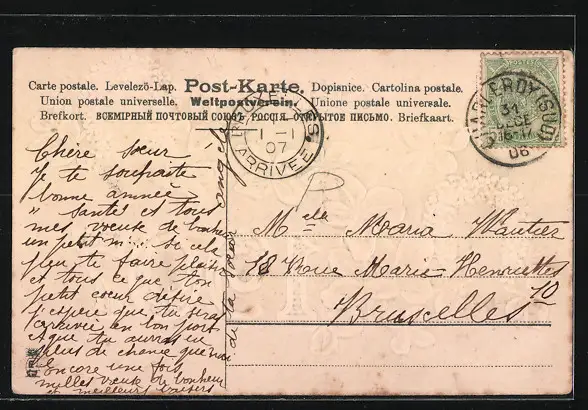 Carte postale. Levelezö-Lap. Post-Karte. Dopisnice. Cartolina postale.
Union postale universelle. Weltpostverein. Unione postale universale.
Brefkort. ВСЕМІРНЫЙ ПОЧТОВЫЙ СОЮЗЪ. РОССІЯ. ОТКРЫТОЕ ПИСЬМО. Briefkaart.
CHARLEROY (SUD)
31
DEC
16-17
06
1-1
07
ARRIVÉE
P
Chère sœur
Je te souhaite
bonne année
santé et tous
mes voeuse de bonheur
un petit m... si cela
peu te faire plaisir
et tous ce que ton
petit coeur désire
j'espère que tu seras
arrivée en bon port
et que tu auras eu
plus de chance que moi
encore une fois
milles voeux de bonheur
et meilleurs baisers
de ta sœur Angèle
Melle Maria Wautier
18 Rue Marie-Henriettes
Bruxelles